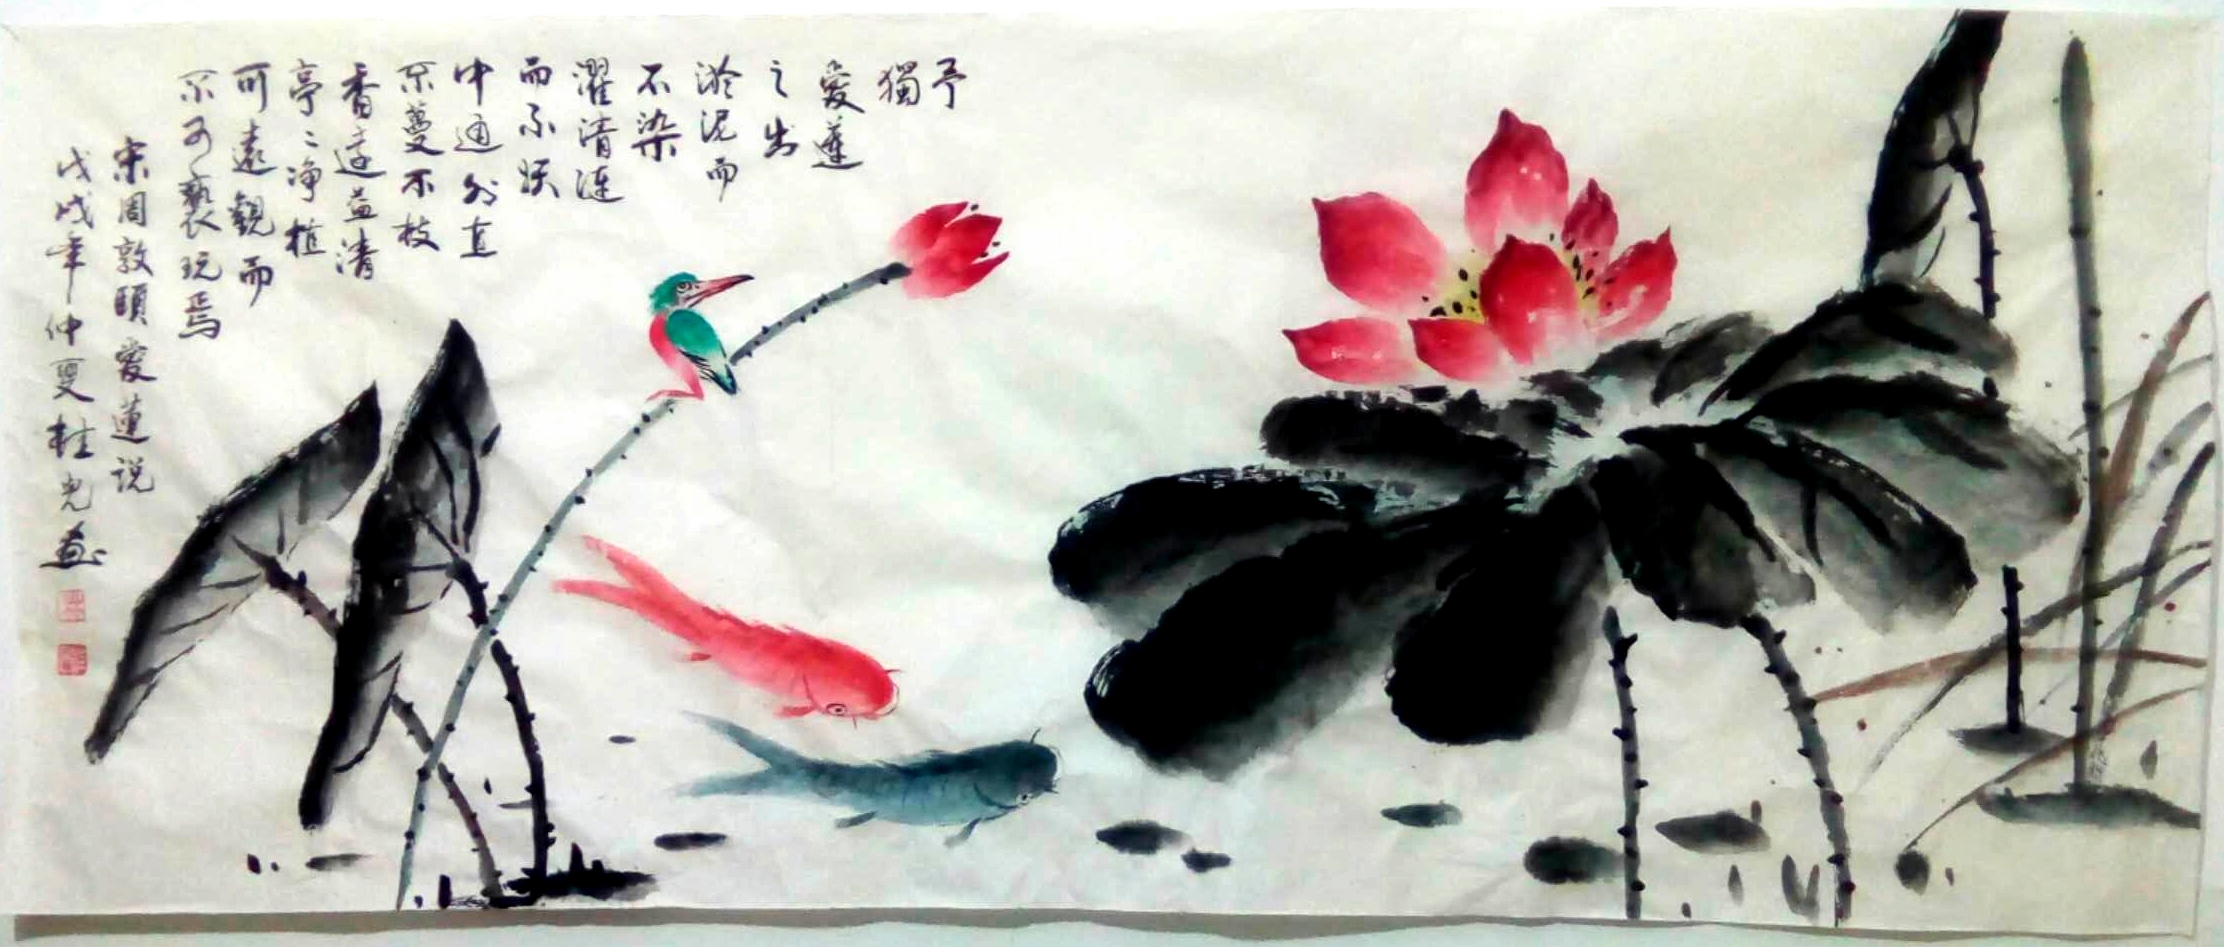 予
獨
愛蓮
之出
淤泥而
不染
濯清漣
而不妖
中通外直
不蔓不枝
香遠益清
亭亭净植
可遠觀而
不可褻玩焉
宋周敦頤愛蓮说
戊戌年仲夏桂光画